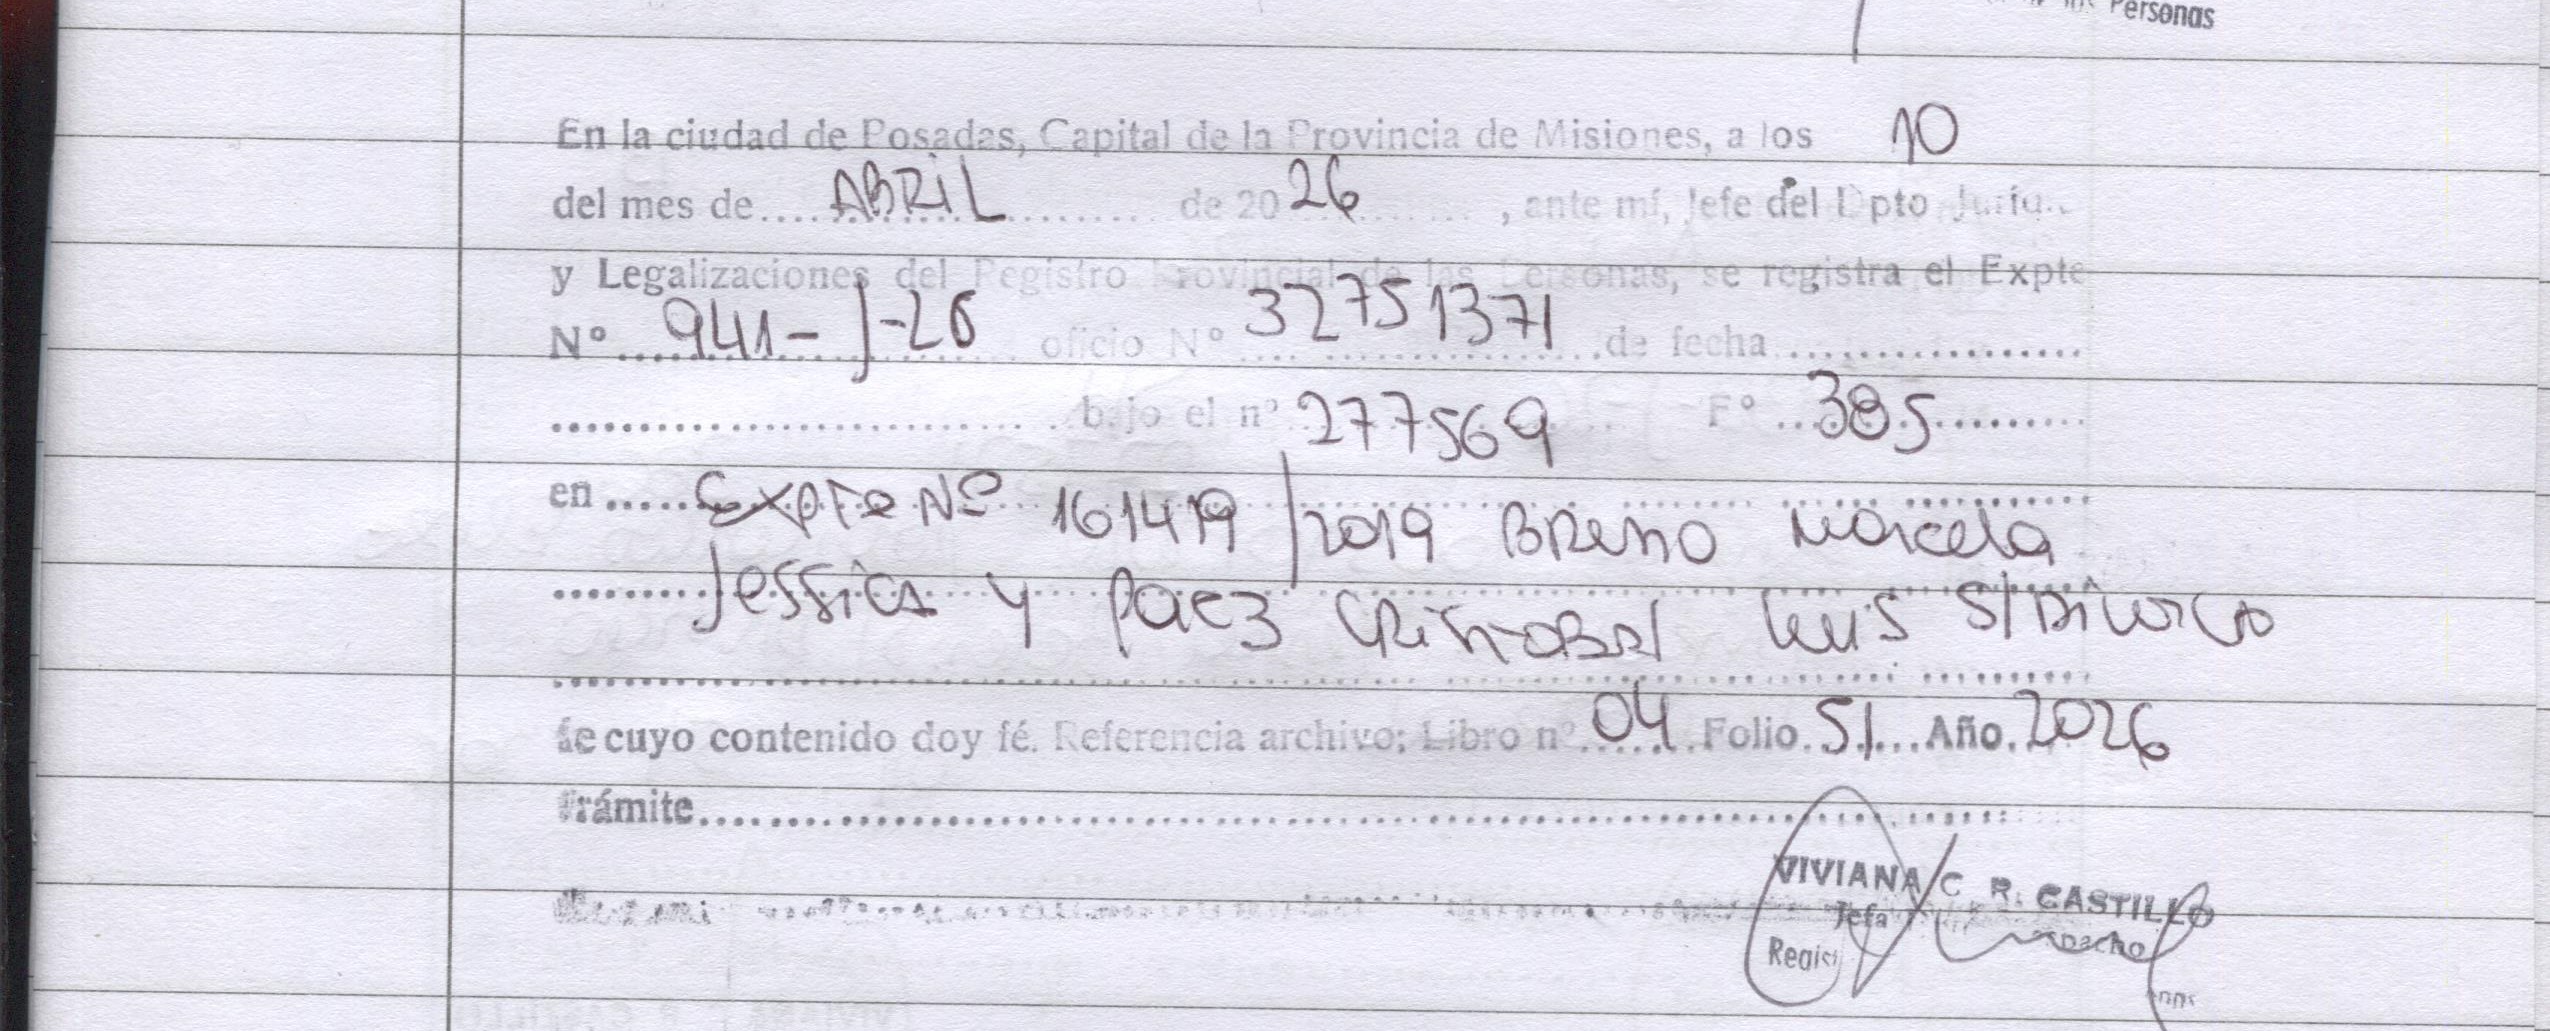 Personas
En la ciudad de Posadas, Capital de la Provincia de Misiones, a los 10
del mes de ABRIL de 2026, ante mí, Jefe del Dpto
y Legalizaciones del Registro Provincial de las Personas, se registra el Expte
Nº 941-J-26 oficio Nº 32751371 de fecha
bajo el nº 277569 Fº 385
en Expte Nº 161419/2019 BRENO Marcela
Jessica y Paez CRISTOBAL Luis S/DIVORCIO
de cuyo contenido doy fé. Referencia archivo: Libro nº 04 Folio 51 Año 2026
Trámite
VIVIANA C. R. CASTILLO
Jefa